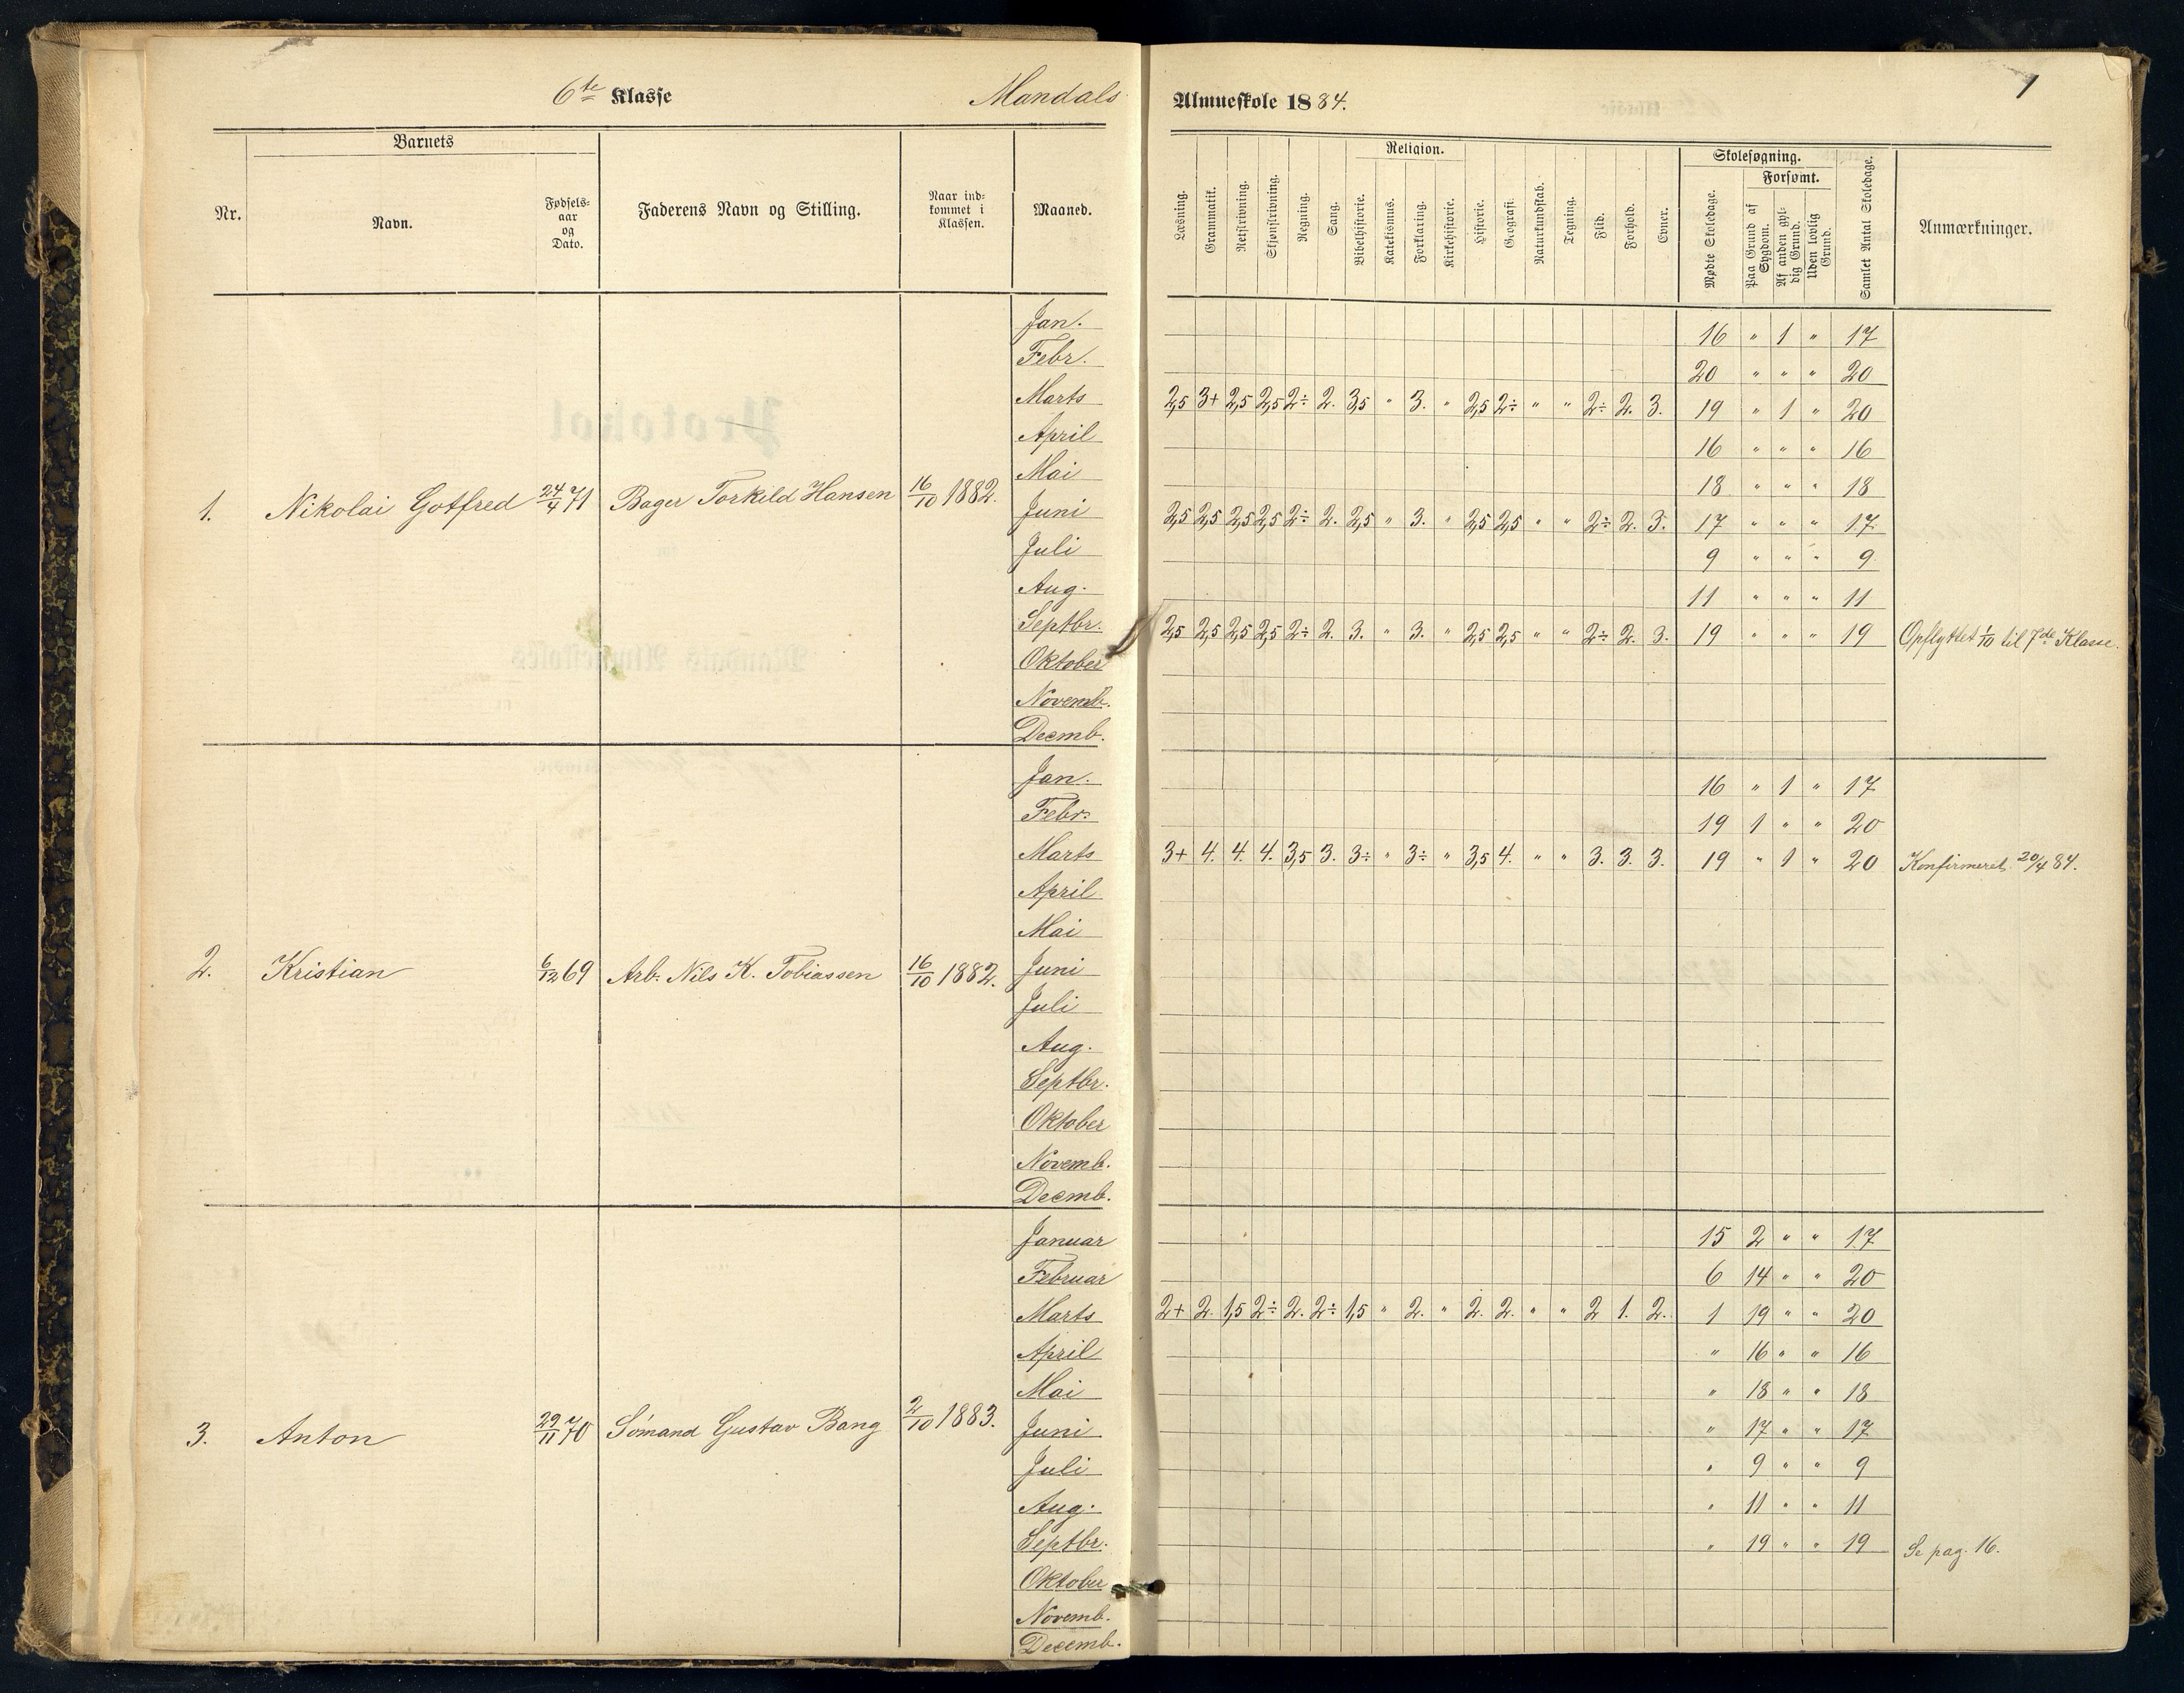 6te Klasse Mandals Almueskole 1884. 1
Barnets Religion. Skolesøgning.
Forsømt.
Nr. Navn. Fødsels-aar og Dato. Faderens Navn og Stilling. Naar ind-kommet i Klassen. Maaned. Læsning. Grammatik. Retskrivning. Skjønskrivning. Regning. Sang. Bibelhistorie. Katekismus. Forklaring. Kirkehistorie. Historie. Geografi. Naturkundskab. Tegning. Flid. Forhold. Evner. Mødte Skoledage. Paa Grund af Sygdom. Af anden gyl-dig Grund. Uden lovlig Grund. Samlet Antal Skoledage. Anmærkninger.
1. Nikolai Gotfred 24/4 71 Bager Torkild Hansen 16/10 1882.
Jan. 16 " 1 " 17
Febr. 20 " " " 20
Marts 2,5 3+ 2,5 2,5 2÷ 2. 3,5 " 3. " 2,5 2÷ " " 2÷ 2. 3. 19 " 1 " 20
April 16 " " " 16
Mai 18 " " " 18
Juni 2,5 2,5 2,5 2,5 2÷ 2. 2,5 " 3. " 2,5 2,5 " " 2÷ 2. 3. 17 " " " 17
Juli 9 " " " 9
Aug. 11 " " " 11
Septbr. 2,5 2,5 2,5 2,5 2÷ 2. 3. " 3. " 2,5 2,5 " " 2÷ 2. 3. 19 " " " 19 Opflyttet 1/10 til 7de Klasse.
Oktober
Novemb.
Decmb.
2. Kristian 6/12 69 Arb. Nils K. Tobiassen 16/10 1882.
Jan. 16 " 1 " 17
Febr. 19 1 " " 20
Marts 3+ 4. 4. 4. 3,5 3. 3÷ " 3÷ " 3,5 4. " " 3. 3. 3. 19 " 1 " 20 Konfirmeret 20/4 84.
April
Mai
Juni
Juli
Aug.
Septbr.
Oktober
Novemb.
Decmb.
3. Anton 29/11 70 Sømand Gustav Bang 2/10 1883.
Januar 15 2 " " 17
Februar 6 14 " " 20
Marts 2+ 2. 1,5 2÷ 2. 2÷ 1,5 " 2. " 2. 2. " " 2 1. 2. 1 19 " " 20
April " 16 " " 16
Mai " 18 " " 18
Juni " 17 " " 17
Juli " 9 " " 9
Aug. " 11 " " 11
Septbr. " 19 " " 19 Se pag. 16.
Oktober
Novemb.
Decemb.